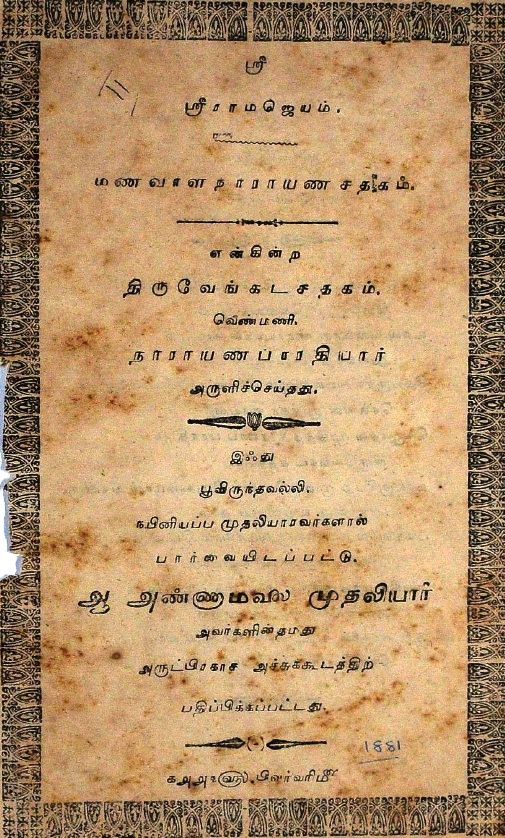 ஸ்ரீ
ஸ்ரீராமஜெயம்.
மணவாளநாராயணசதகம்.
என்கின்ற
திருவேங்கடசதகம்.
வெண்மணி.
நாராயணப்பாரதியார்
அருளிச்செய்தது.
இஃது
பூவிருந்தவல்லி.
நயினியப்ப முதலியாரவர்களால்
பார்வையிடப்பட்டு.
ஆ அண்ணாமலை முதலியார்
அவர்களின்தமது
அருட்பிரகாச அச்சுக்கூடத்திற்
பதிப்பிக்கப்பட்டது.
1881